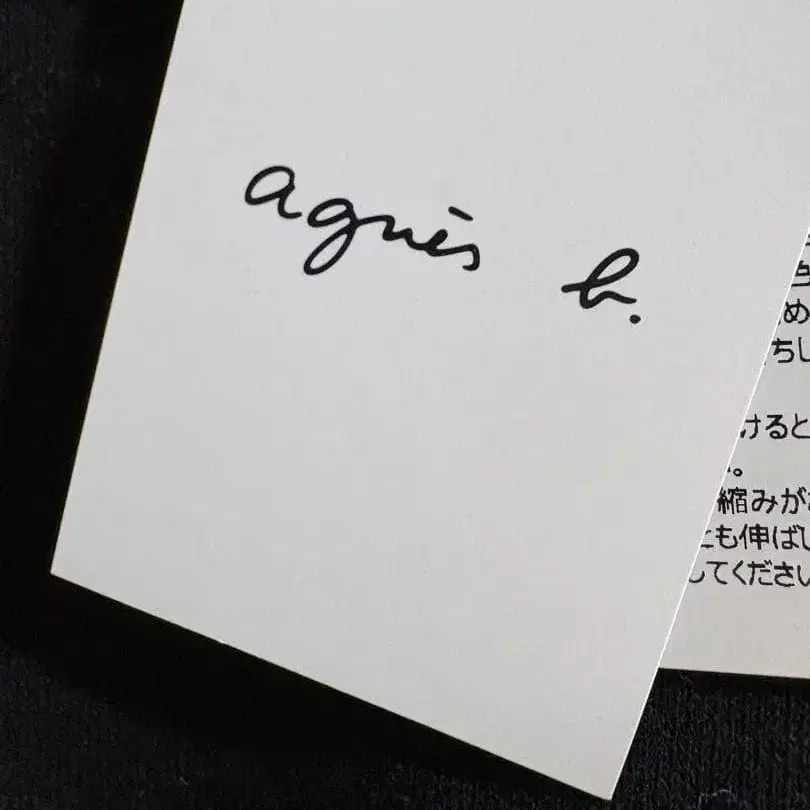 agnès b.
め
ちし
けると
。
縮みが
も伸ばし
してください